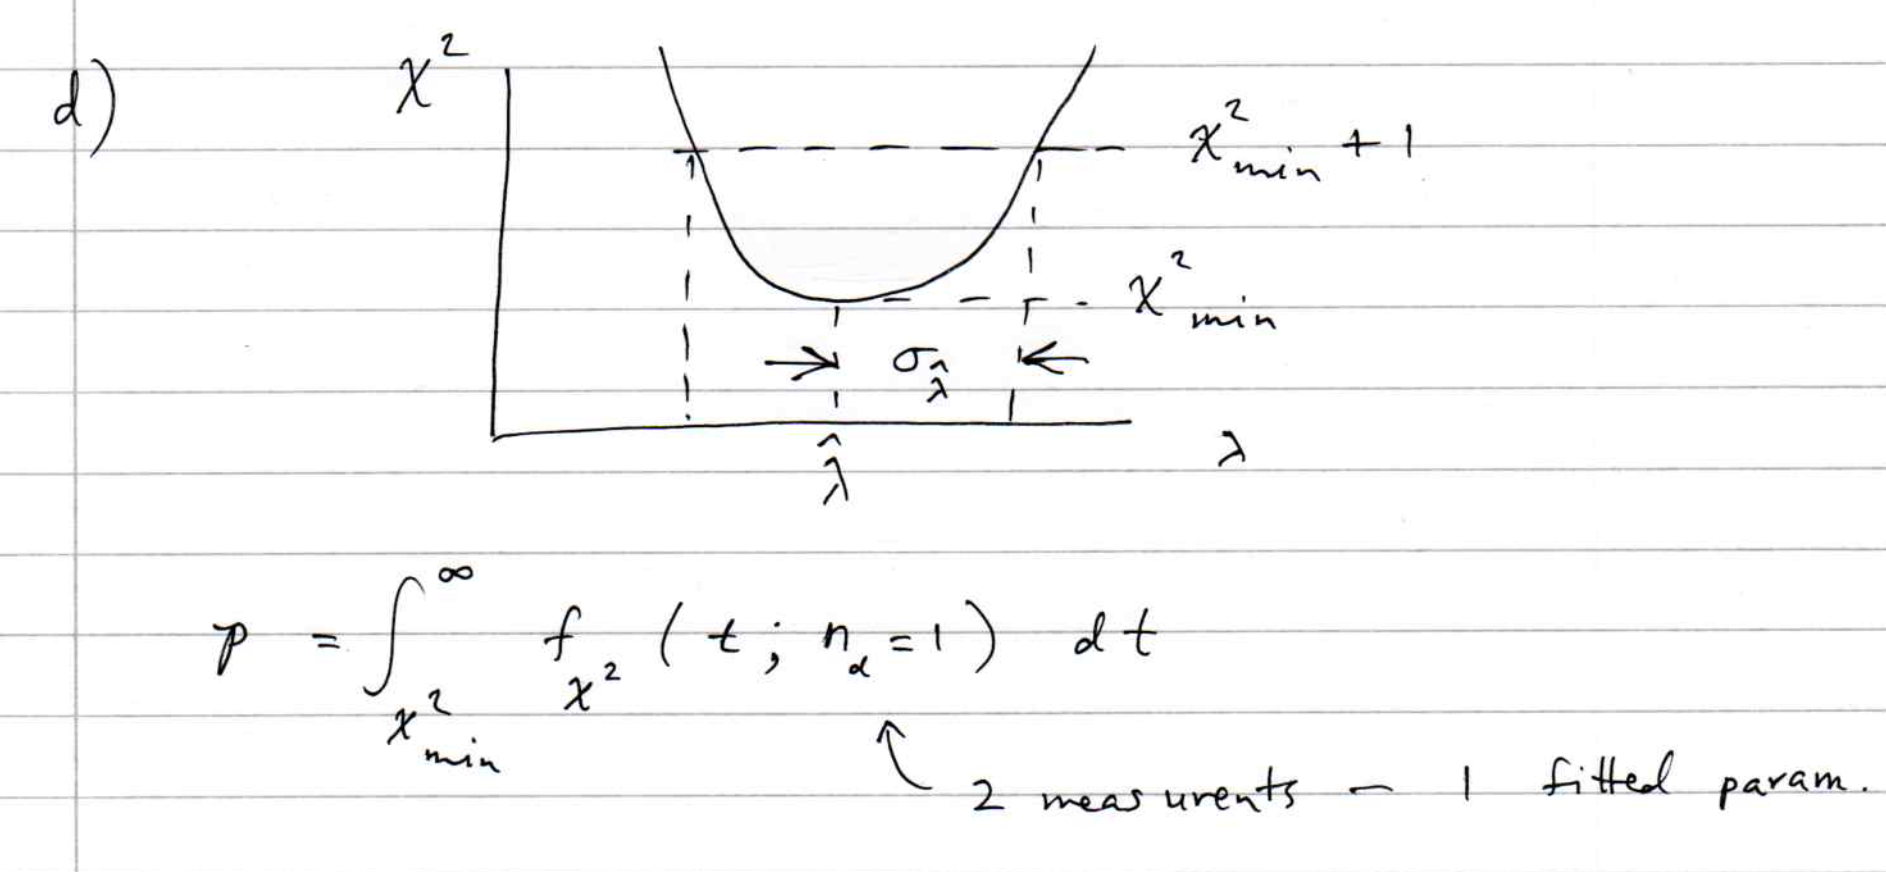 d)
χ²
χ²min + 1
χ²min
σ_λ̂
λ̂
λ
p = ∫_{χ²min}^{∞} f_{χ²} ( t ; n_d = 1 ) dt
2 measurents – 1 fitted param.